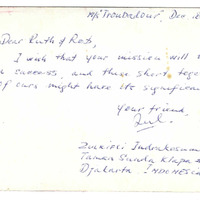 M/S "Troubadour", Dec. 1
Dear Ruth & Rob,
I wish that your mission will
success, and these short toge
of ours might have its significa
Your friend,
Zul.
Zulkifli Indrakusum
Taman Sunda Klapa
Djakarta, INDONESIA